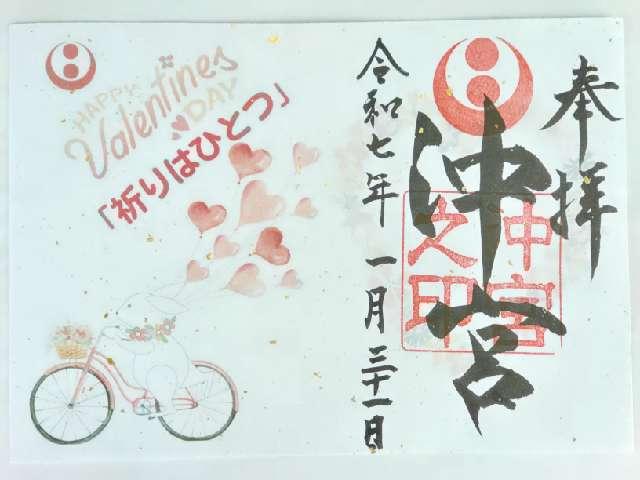 奉拝
沖宮
沖宮
之印
令和七年一月三十一日
HAPPY
Valentines
DAY
「祈りはひとつ」